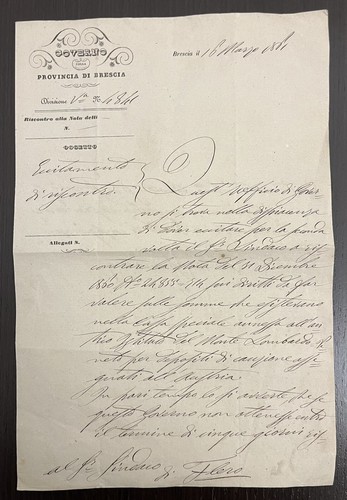 GOVERNO
DELLA
PROVINCIA DI BRESCIA
Divisione Vª Nº 4841
Riscontro alla Nota delli
N.
OGGETTO
Eccitamento
di riscontro.
Allegati N.
Brescia il 16 Marzo 1861
Quest' Ufficio di Gover
no si trova nella dispiacenza
di dover eccitare per la seconda
volta il Sr. Sindaco a ris
contrare la Nota del 31 Dicembre
1860 Nº 24855 sui diritti da far
valere sulle somme che esistessero
nella Cassa Speciale annessa all'an
tico Istituto del Monte Lombardo Ve
neto per depositi di cauzione asse
gnati all'Austria.
In pari tempo lo si avverte che se
questo Governo non ottenesse entro
il termine di cinque giorni ris
al Sr. Sindaco di Flero